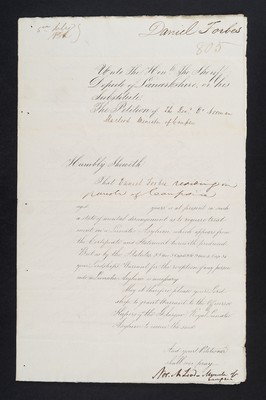 Daniel Forbes
805
Unto The Honble The Sheriff
Depute of Lanarkshire, or his
Substitute
The Petition of The Revd Dr Norman
Macleod Minister of Campsie
Humbly Sheweth
That Daniel Forbes residing in
parish of Campsie
years is at present in such
a state of mental derangement as to require treat-
ment in a Lunatic Asylum, which appears from
the Certificate and Statement herewith produced
But as by the Statutes
your Lordships Warrant for the reception of any person
into a Lunatic Asylum is necessary
May it therefore please your Lord-
ship to grant Warrant to the
Keeper of the Glasgow Royal Lunatic
Asylum to receive the said
And your Petitioner
shall ever pray
Nor. McLeod Minister of
Campsie